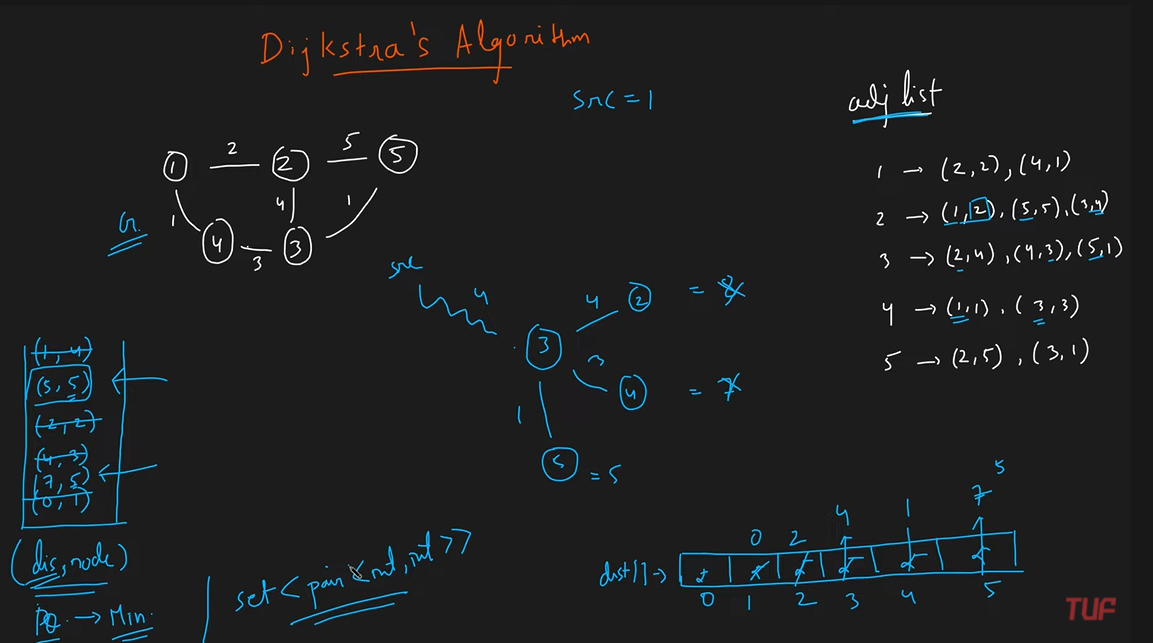 Dijkstra's Algorithm
src = 1
adj list
1 → (2,2), (4,1)
2 → (1,2), (5,5), (3,4)
3 → (2,4), (4,3), (5,1)
4 → (1,1), (3,3)
5 → (2,5), (3,1)
1 2 2 5 5
1 4 1
4 3 3
G
src 4
3 4 2 = 8
3 4 = 7
1 5 = 5
(1,4)
(5,5)
(2,2)
(4,3)
(7,5)
(0,1)
(dis, node)
PQ → Min.
set < pair < int, int >>
5
0 2 4 1 7
dist[] →
0 1 2 3 4 5
TUF